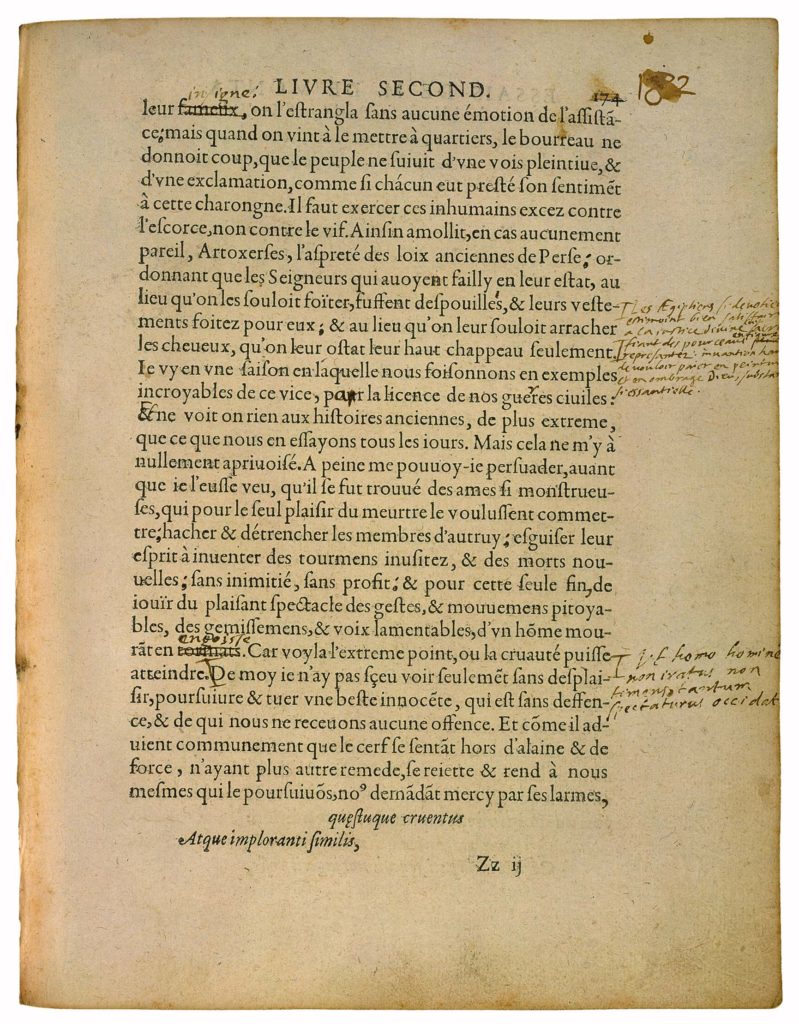 LIVRE SECOND.
174
1882
insigne,
leur fameux, on l'eſtrangla ſans aucune émotion de l'aſsiſtã-
ce; mais quand on vint à le mettre à quartiers, le bourreau ne
donnoit coup, que le peuple ne ſuiuit d'vne vois pleintiue, &
d'vne exclamation, comme ſi chácun eut preſté ſon ſentimẽt
à cette charongne. Il faut exercer ces inhumains excez contre
l'eſcorce, non contre le vif. Ainſin amollit, en cas aucunement
pareil, Artoxerſes, l'aſpreté des loix anciennes de Perſe; or-
donnant que les Seigneurs qui auoyent failly en leur eſtat, au
lieu qu'on les ſouloit foïter, fuſſent deſpouillés, & leurs veſte-
ments foitez pour eux; & au lieu qu'on leur ſouloit arracher
les cheueux, qu'on leur oſtat leur haut chappeau ſeulement.
Ie vy en vne ſaiſon en laquelle nous foiſonnons en exemples
incroyables de ce vice, par la licence de nos guerres ciuiles:
& ne voit on rien aux hiſtoires anciennes, de plus extreme,
que ce que nous en eſſayons tous les iours. Mais cela ne m'y à
nullement apriuoiſé. A peine me pouuoy-ie perſuader, auant
que ie l'euſſe veu, qu'il ſe fut trouué des ames ſi monſtrueu-
ſes, qui pour le ſeul plaiſir du meurtre le vouluſſent commet-
tre; hacher & détrencher les membres d'autruy; eſguiſer leur
eſprit à inuenter des tourmens inuſitez, & des morts nou-
uelles; ſans inimitié, ſans profit; & pour cette ſeule fin, de
iouïr du plaiſant ſpectacle des geſtes, & mouuemens pitoya-
bles, des gemiſſemens, & voix lamentables, d'vn hõme mou-
engoisse
rãt en . Car voyla l'extreme point, ou la cruauté puiſſe
atteindre. De moy ie n'ay pas ſçeu voir ſeulemẽt ſans deſplai-
ſir, pourſuiure & tuer vne beſte innocẽte, qui eſt ſans deffen-
ce, & de qui nous ne receuons aucune offence. Et cõme il ad-
uient communement que le cerf ſe ſentãt hors d'alaine & de
force, n'ayant plus autre remede, ſe reiette & rend à nous
meſmes qui le pourſuiuõs, noꝰ demãdãt mercy par ſes larmes,
quęſtuque cruentus
Atque imploranti ſimilis,
Zz ij
Les Ægiptiens si devotieus
estimoint bien satisfaire
à la justice divine luy
sacrifiant des pourceaus en figure
representez: invantion hardie
de vouloir païer en peinture
et en ombrage Dieu, substance
si essantielle.
Vt homo hominem
non iratus non
timens tantum
spectaturus occidat